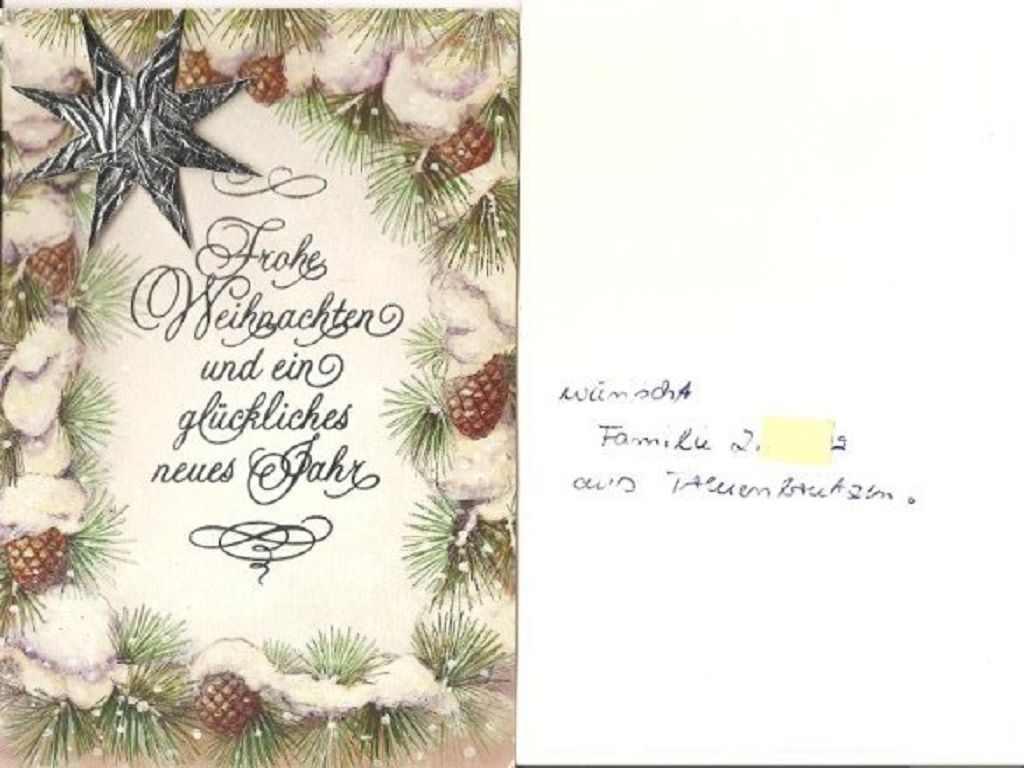 Frohe
Weihnachten
und ein
glückliches
neues Jahr
wünscht
Familie Z.
aus